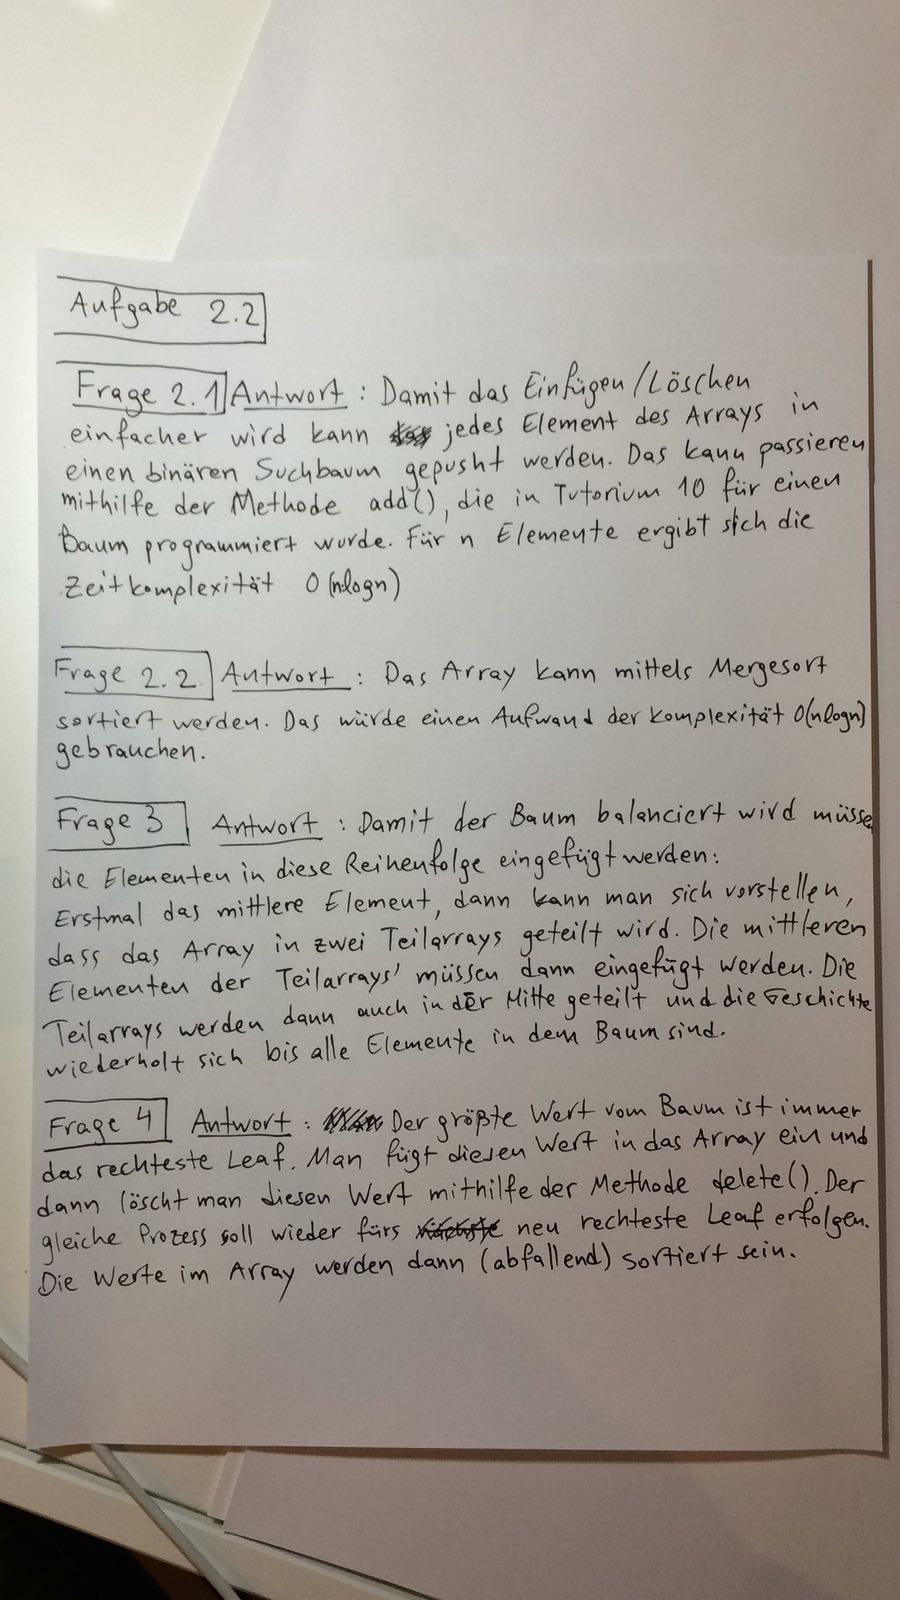 Aufgabe 2.2
Frage 2.1 Antwort : Damit das Einfügen/Löschen
einfacher wird kann jedes Element des Arrays in
einen binären Suchbaum gepusht werden. Das kann passieren
mithilfe der Methode add(), die in Tutorium 10 für einen
Baum programmiert wurde. Für n Elemente ergibt sich die
Zeitkomplexität O(n·logn)
Frage 2.2 Antwort : Das Array kann mittels Mergesort
sortiert werden. Das würde einen Aufwand der Komplexität O(nlogn)
gebrauchen.
Frage 3 Antwort : Damit der Baum balanciert wird müsse
die Elementen in diese Reihenfolge eingefügt werden:
Erstmal das mittlere Element, dann kann man sich vorstellen,
dass das Array in zwei Teilarrays geteilt wird. Die mittleren
Elementen der Teilarrays' müssen dann eingefügt werden. Die
Teilarrays werden dann auch in der Mitte geteilt und die Geschichte
wiederholt sich bis alle Elemente in dem Baum sind.
Frage 4 Antwort : Der größte Wert vom Baum ist immer
das rechteste Leaf. Man fügt diesen Wert in das Array ein und
dann löscht man diesen Wert mithilfe der Methode delete(). Der
gleiche Prozess soll wieder fürs neu rechteste Leaf erfolgen.
Die Werte im Array werden dann (abfallend) sortiert sein.